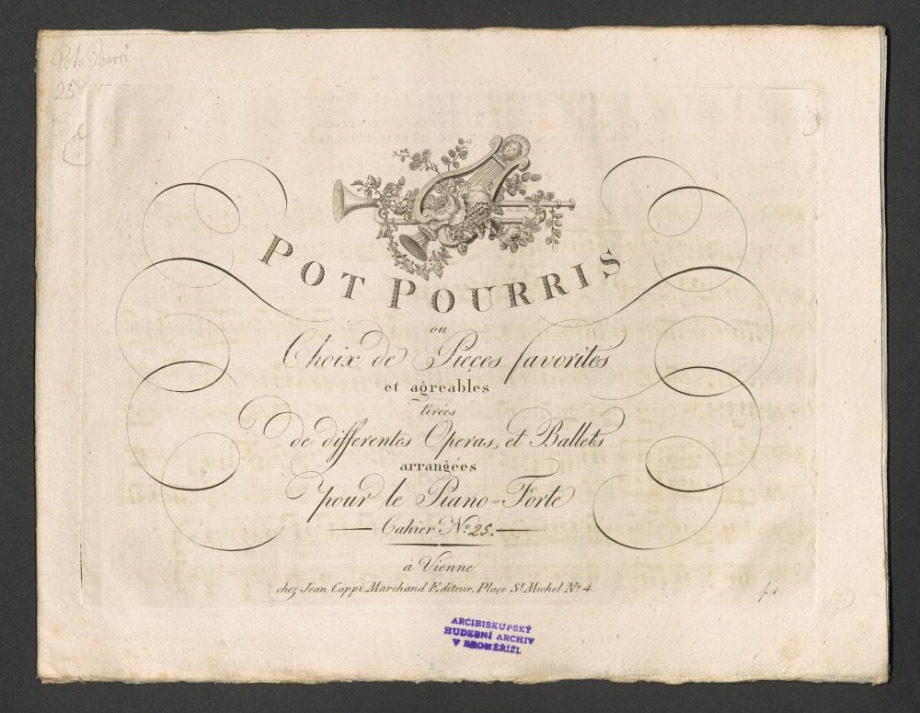 Poto Pourri
25
POT POURRIS
ou
Choix de Pieçes favorites
et agreables
tirées
de differentés Operas, et Ballets
arrangées
pour le Piano-Forte
Cahier No 25.
à Vienne
chez Jean Cappi Marchand Editeur, Plaçe St Michel No 4.
f 1.
ARCIBISKUPSKÝ
HUDEBNÍ ARCHIV
V KROMĚŘÍŽI.